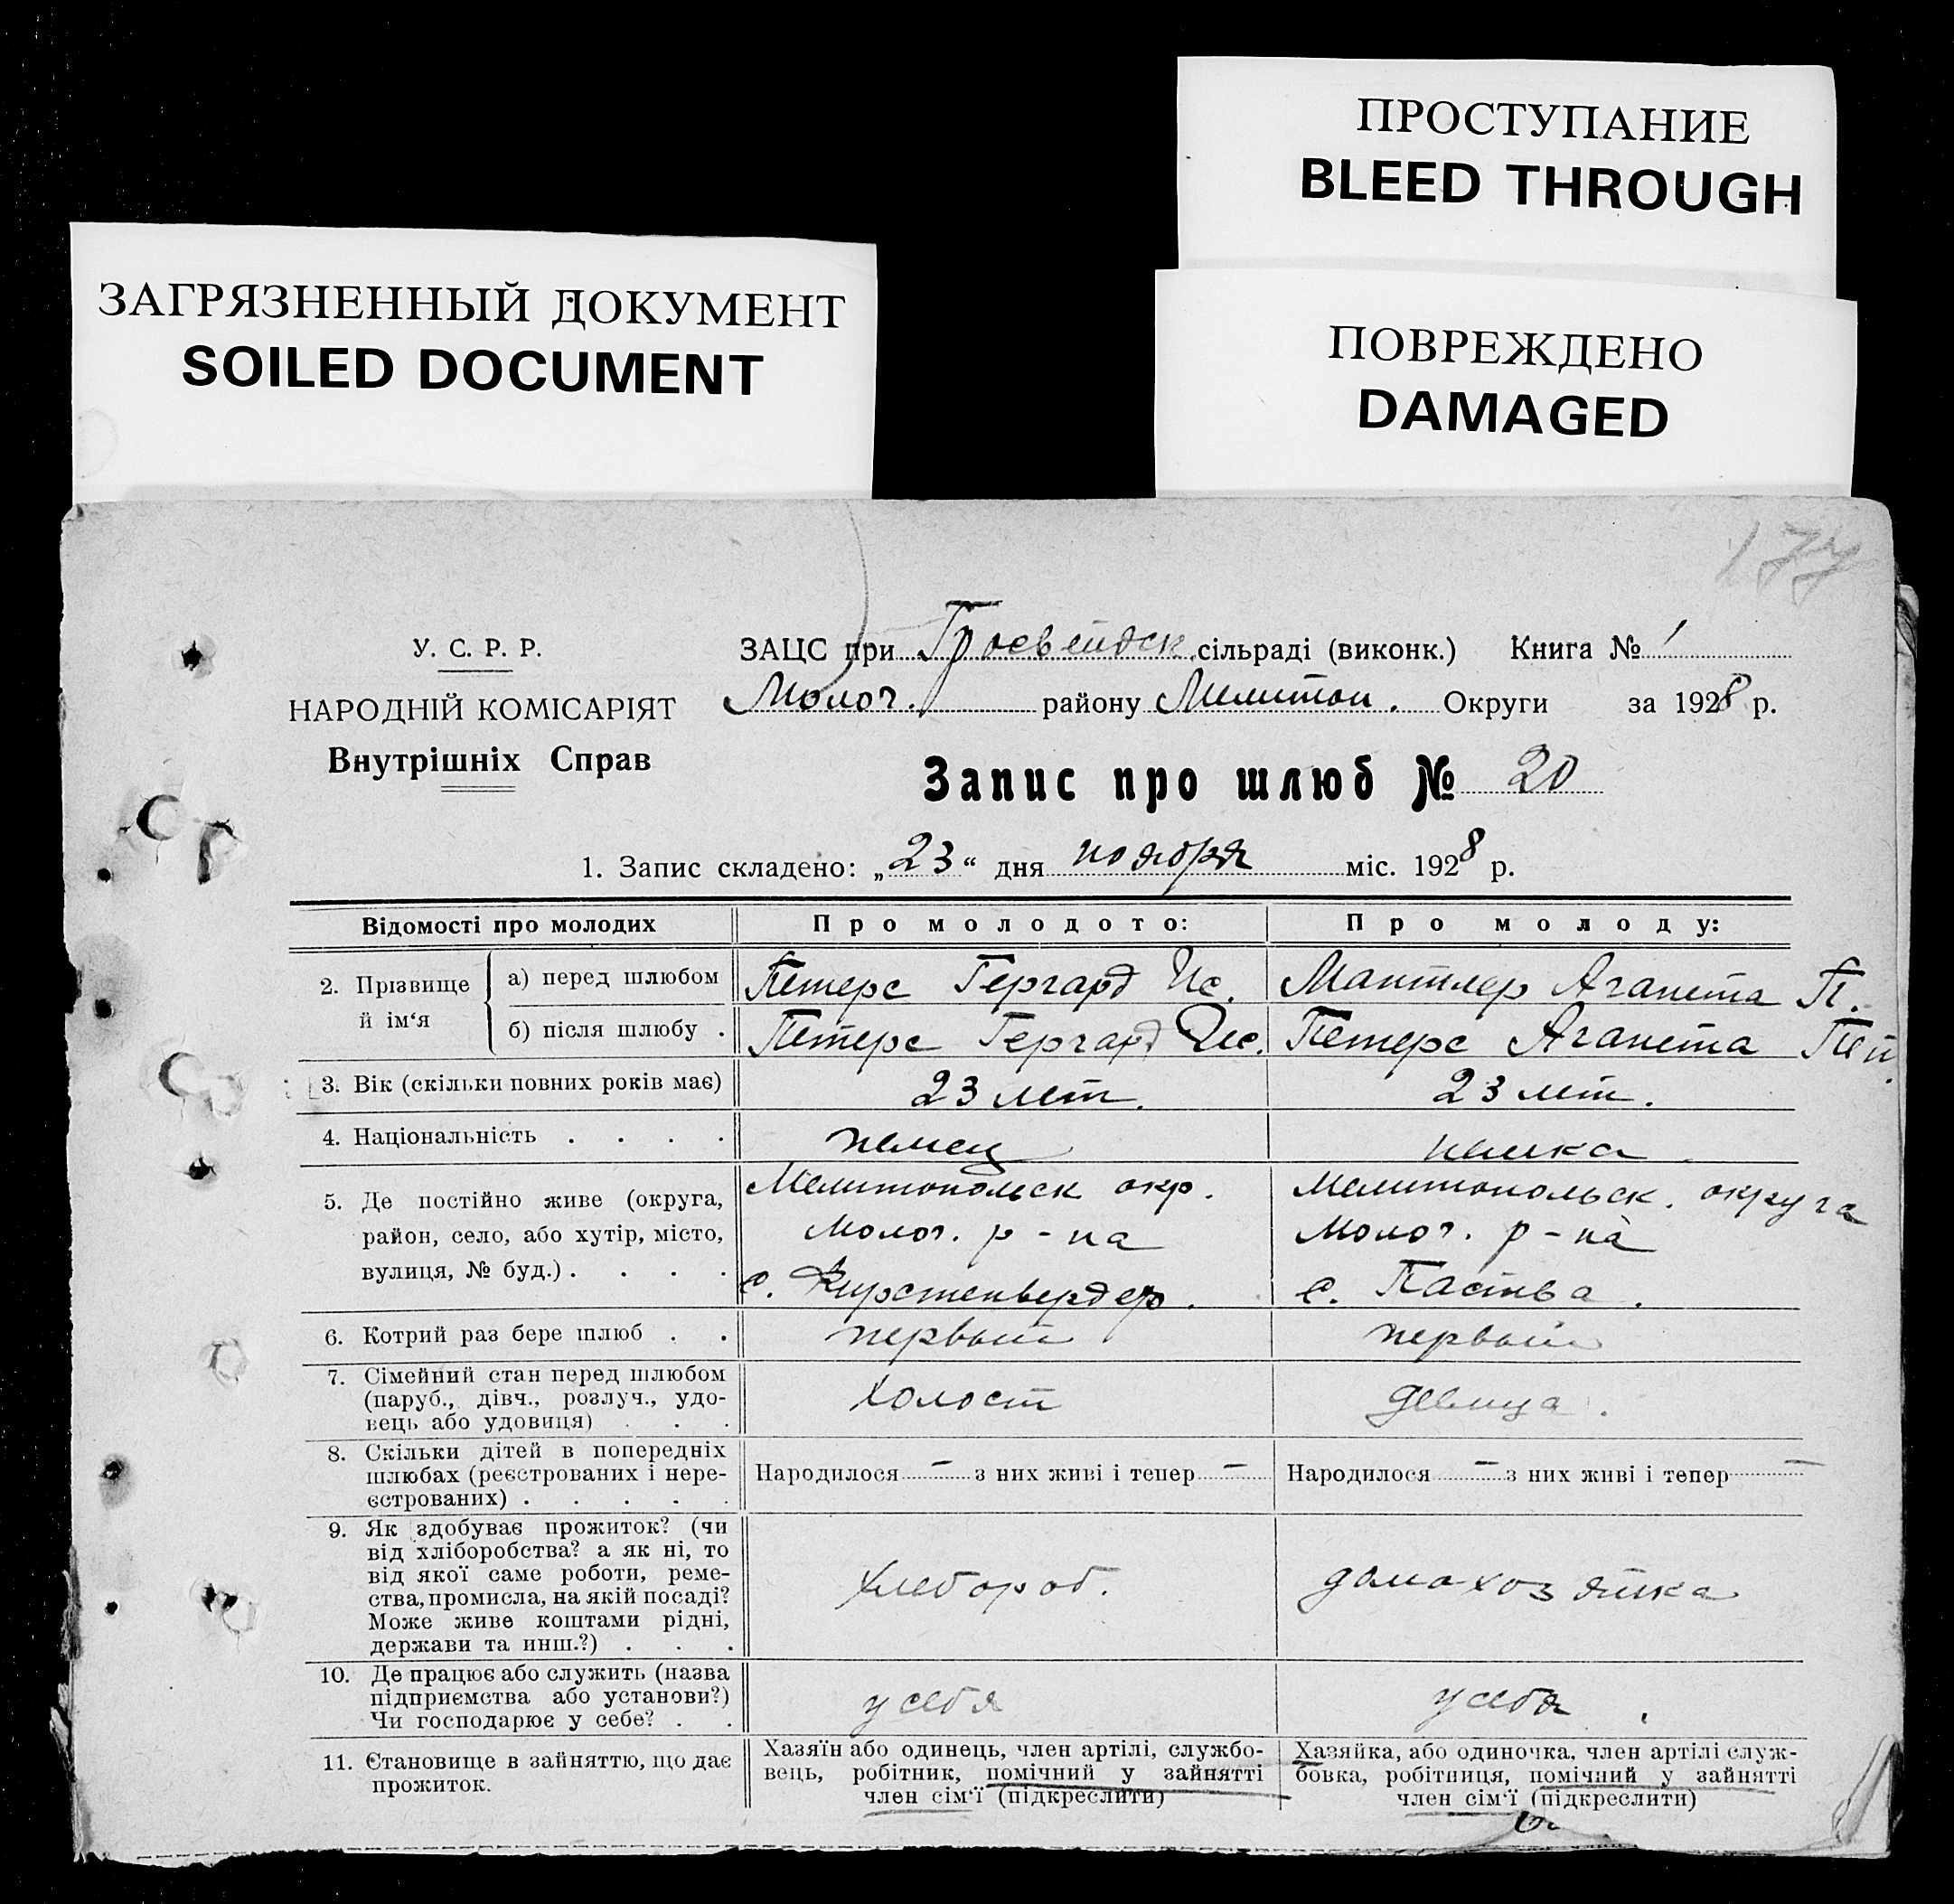 ПРОСТУПАНИЕ
BLEED THROUGH
ЗАГРЯЗНЕННЫЙ ДОКУМЕНТ
SOILED DOCUMENT
ПОВРЕЖДЕНО
DAMAGED
177
У. С. Р. Р.
НАРОДНІЙ КОМІСАРІЯТ
Внутрішніх Справ
ЗАЦС при Гросвейдск. сільраді (виконк.) Книга № 1
Молоч. району Мелитоп. Округи за 1928 р.
Запис про шлюб № 20
1. Запис складено: „23“ дня ноября міс. 1928 р.
Відомості про молодих
Про молодого:
Про молоду:
2. Прізвище й ім‘я
а) перед шлюбом
Петерс Гергард Ис.
Мантлер Аганета П.
б) після шлюбу .
Петерс Гергард Ис.
Петерс Аганета
3. Вік (скільки повних років має)
23 лет.
23 лет.
4. Національність . . . .
немец
немка
5. Де постійно живе (округа,
район, село, або хутір, місто,
вулиця, № буд.) . . . .
Мелитопольск окр.
Молоч. р-на
с. Фирстенвердер.
Мелитопольск. округа
Молоч. р-на
с. Паства.
6. Котрий раз бере шлюб . .
первый
первый
7. Сімейний стан перед шлюбом
(паруб., дівч., розлуч., удо-
вець або удовиця) . . .
холост
девица.
8. Скільки дітей в попередніх
шлюбах (реєстрованих і нере-
єстрованих) . . . . .
Народилося — з них живі і тепер —
Народилося — з них живі і тепер —
9. Як здобуває прожиток? (чи
від хліборобства? а як ні, то
від якої саме роботи, реме-
ства, промисла, на якій посаді?
Може живе коштами рідні,
держави та инш.?) . . .
хлебороб.
домохозяйка
10. Де працює або служить (назва
підприємства або установи?)
Чи господарює у себе? . .
у себя
у себя
11. Становище в зайняттю, що дає
прожиток.
Хазяїн або одинець, член артілі, службо-
вець, робітник, помічний у зайнятті
член сім‘ї (підкреслити)
Хазяйка, або одиночка, член артілі служ-
бовка, робітниця, помічний у зайнятті
член сім‘ї (підкреслити)